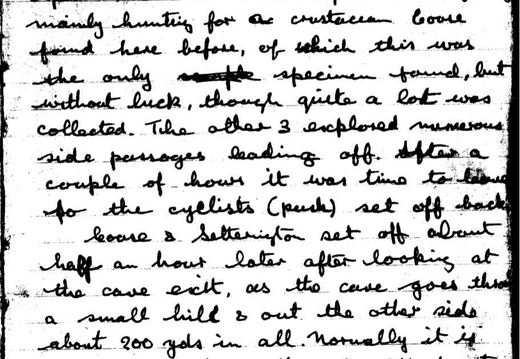 mainly hunting for a crustacean Coase
found here before, of which this was
the only specimen found, but
without luck, though quite a lot was
collected. The other 3 explored numerous
side passages leading off. After a
couple of hours it was time to leave
so the cyclists (push) set off back
Coase & Setterington set off about
half an hour later after looking at
the cave exit, as the cave goes thro
a small hill & out the other side
about 200 yds in all. Normally it is